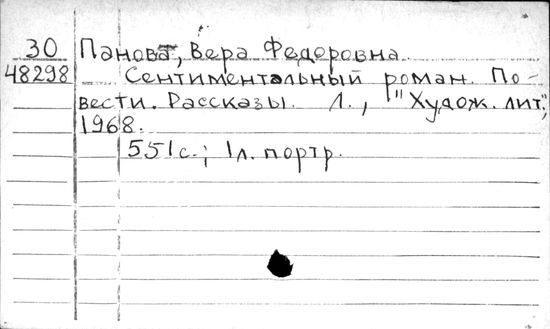 30 Панова, Вера Федоровна.
48298 Сентиментальный роман. По-
вести. Рассказы. Л., "Худож. лит.",
1968.
551с.; 1л. портр.